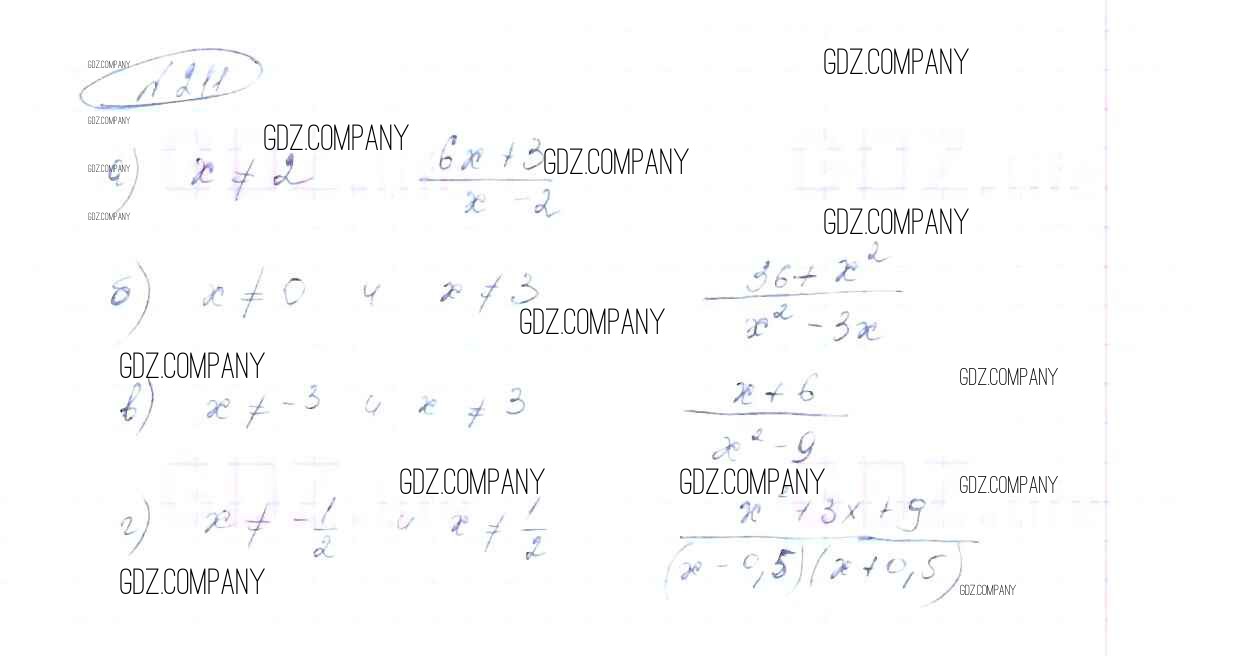 GDZ.COMPANY
GDZ.COMPANY
№ 211
GDZ.COMPANY
GDZ.COMPANY
GDZ.COMPANY
GDZ.COMPANY
а) x ≠ 2 (6x + 3)/(x - 2)
GDZ.COMPANY
GDZ.COMPANY
б) x ≠ 0 и x ≠ 3 (36 + x²)/(x² - 3x)
GDZ.COMPANY
GDZ.COMPANY
GDZ.COMPANY
в) x ≠ -3 и x ≠ 3 (x + 6)/(x² - 9)
GDZ.COMPANY
GDZ.COMPANY
GDZ.COMPANY
г) x ≠ -1/2 и x ≠ 1/2 (x² + 3x + 9)/((x - 0,5)(x + 0,5))
GDZ.COMPANY
GDZ.COMPANY